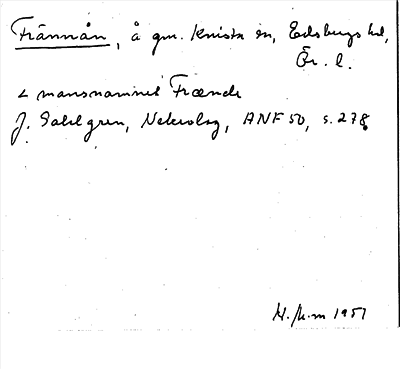 Frännån, å gm. Knista sn, Edsbergs hd,
Ör. l.
< mansnamnet Frænde
J. Sahlgren, Nekrolog, ANF 50, s. 278
1951